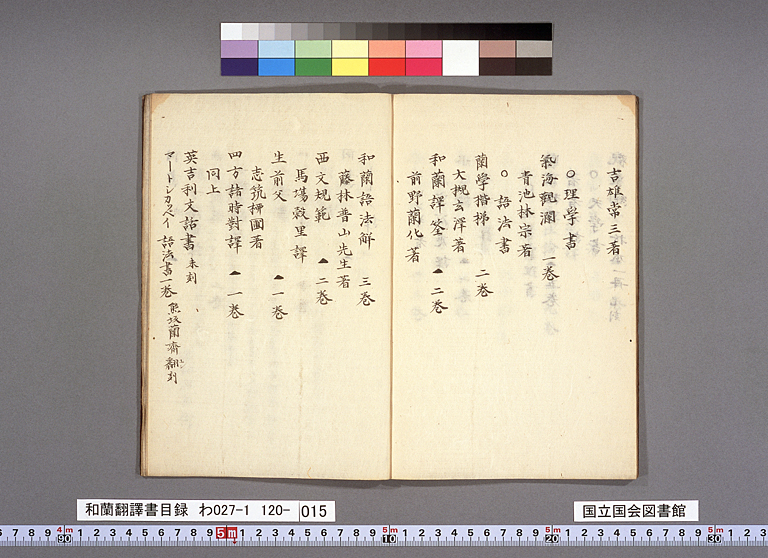 吉雄常三著
○理學書
氣海觀瀾 一巻
青池林宗著
○語法書
蘭學楷梯 二巻
大槻玄澤著
和蘭譯筌 ▲二巻
前野蘭化著
和蘭語法解 三巻
藤林普山先生著
西文規範 ▲二巻
馬塲穀里譯
生前父 ▲一巻
志筑栁圃著
四方諸時對譯 ▲一巻
同上
英吉利文話書 未刻
語法書一巻
和蘭翻譯書目録 わ027-1 120- 015
国立国会図書館